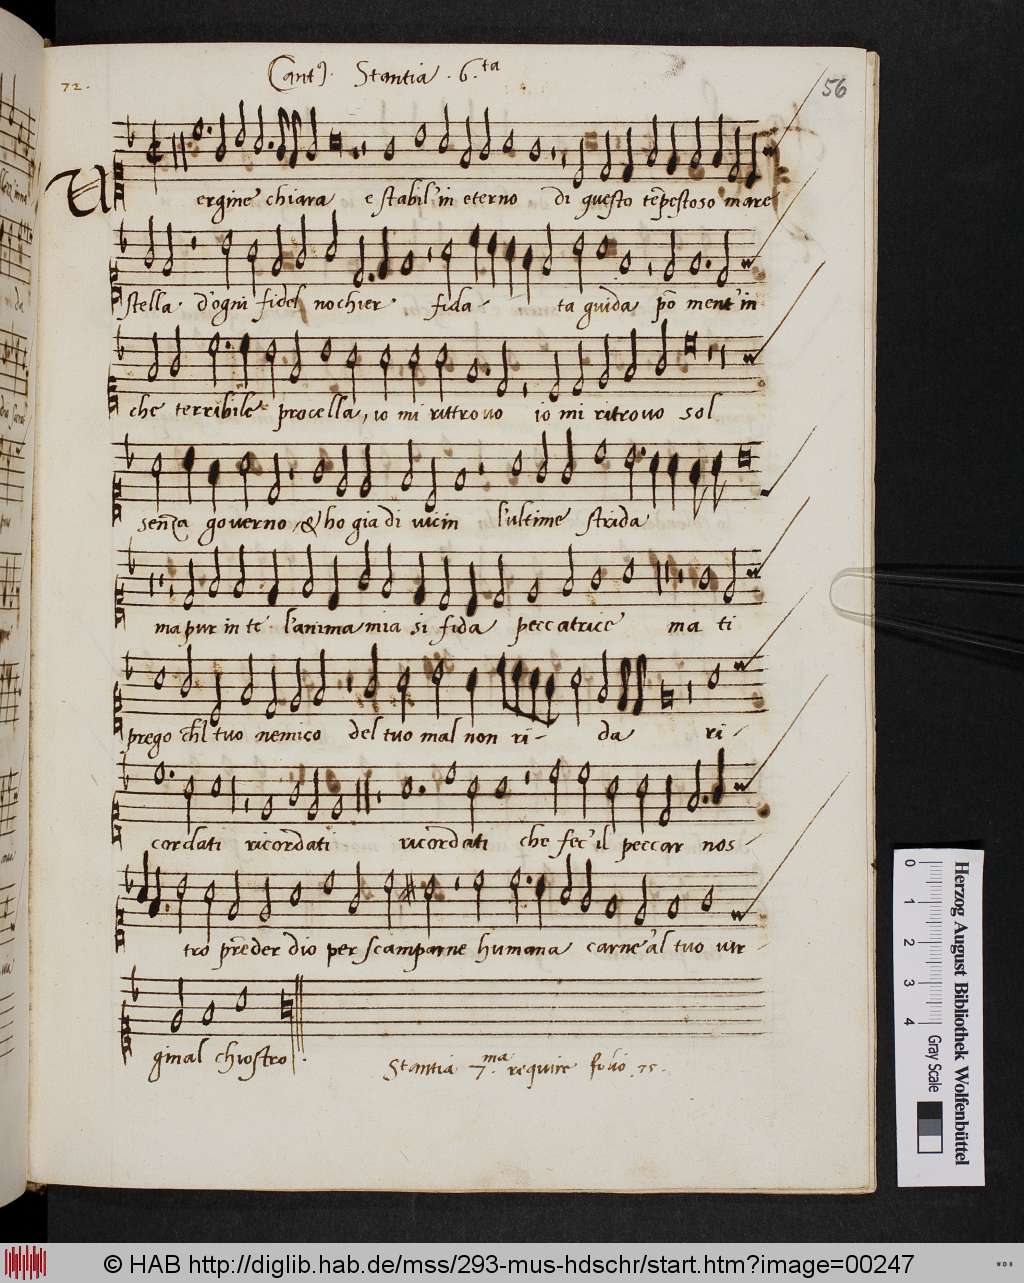 72. Cant9. Stantia . 6.ta 56
Vergine chiara e stabil'in eterno di questo tẽpestoso mare
stella d'ogni fidel nochier fida- ta guida põ ment'in
che terribile procella, io mi rittrovo io mi ritrovo sol
senza governo, & ho gia di vicin l'ultime strida
ma pur in te l'anima mia si fida peccatrice ma ti
prego ch'l tuo nemico del tuo mal non ri- da ri-
cordati ricordati ricordati che fec'il peccar nos-
tro prẽder dio per scamparne humana carne'al tuo vir-
ginal chiostro.
Stantia 7.ma require folio .75.
Herzog August Bibliothek Wolfenbüttel
0 1 2 3 4 Gray Scale
© HAB http://diglib.hab.de/mss/293-mus-hdschr/start.htm?image=00247